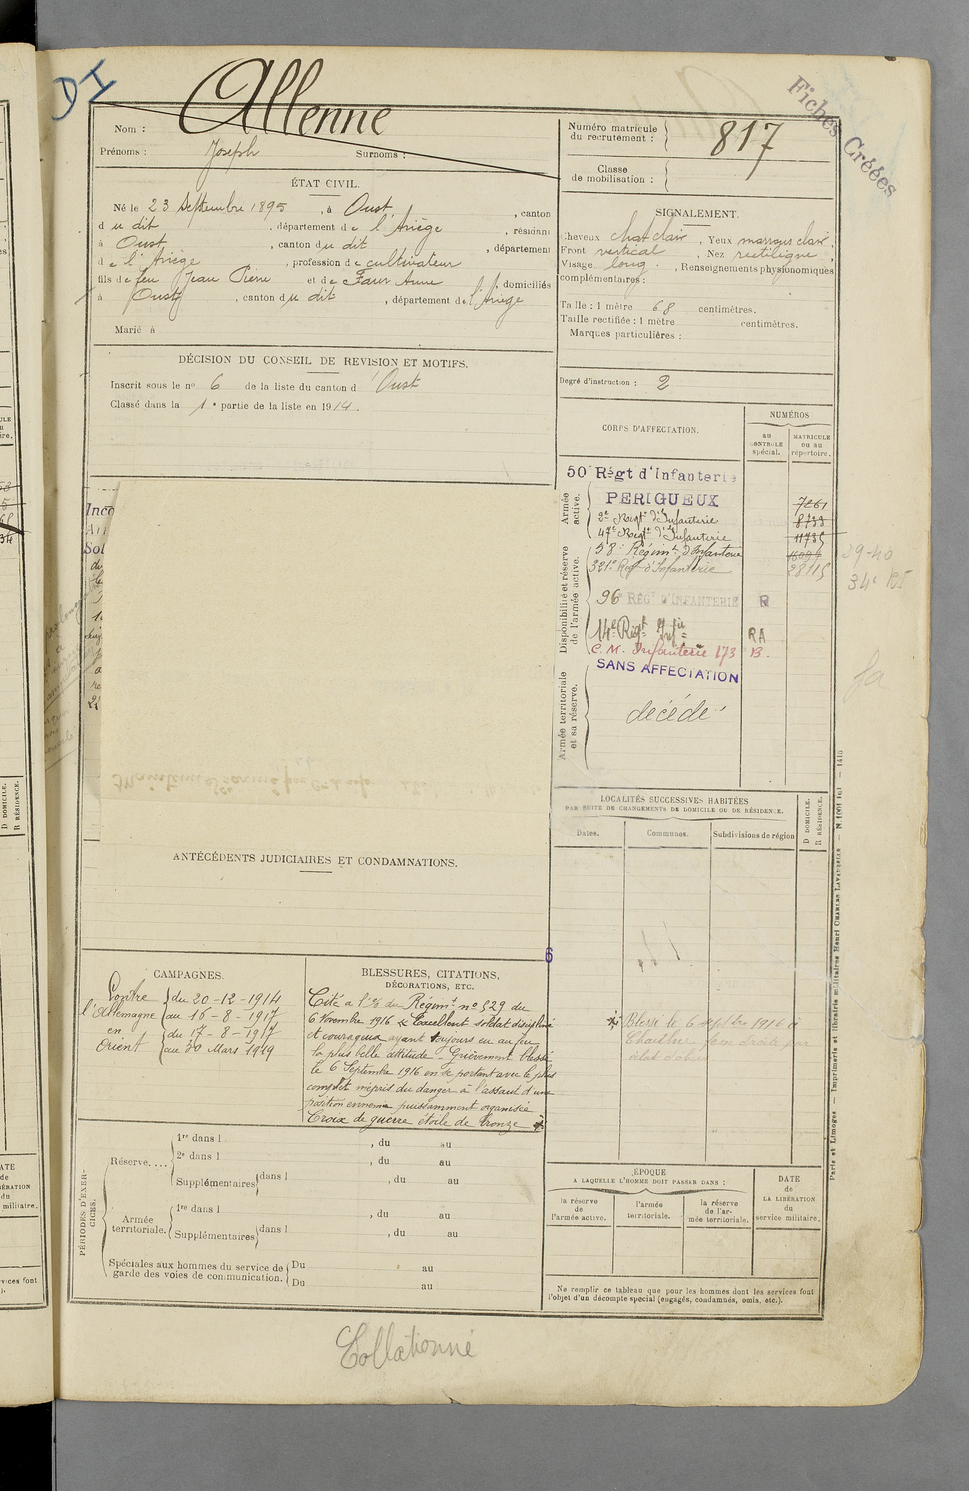 DI
Fiches Créées
Nom : Allenne
Prénoms : Joseph Surnoms :
Numéro matricule du recrutement : 817
Classe de mobilisation :
ÉTAT CIVIL.
Né le 23 septembre 1895, à Oust, canton
d u dit, département de l'Ariège, résidant
à Oust, canton du dit, département
d e l'Ariège, profession de cultivateur
fils de feu Jean Pierre et de Faur Anne domiciliés
à Oust, canton du dit, département de l'Ariège
Marié à
SIGNALEMENT.
Cheveux chat clair, Yeux marrons clair,
Front vertical, Nez rectiligne,
Visage long, Renseignements physionomiques
complémentaires :
Taille : 1 mètre 68 centimètres.
Taille rectifiée : 1 mètre centimètres.
Marques particulières :
Degré d'instruction : 2
DÉCISION DU CONSEIL DE REVISION ET MOTIFS.
Inscrit sous le nº 6 de la liste du canton d'Oust
Classé dans la 1e partie de la liste en 1914.
CORPS D'AFFECTATION.
NUMÉROS
au CONTROLE spécial.
MATRICULE ou au répertoire.
Armée active.
50e Régt d'Infanterie
PERIGUEUX 7261
2e Regt d'Infanterie 8733
47e Regt d'Infanterie 11735
Disponibilité et réserve de l'armée active.
58e Régimt d'Infanterie
321e Reg d'Infanterie 28115
96e RÉGT D'INFANTERIE R
14e Régt d'Infie RA
C. M. Infanterie 173 B.
SANS AFFECTATION
Armée territoriale et sa réserve.
décédé
39-40
34e BI
Inco
Sol
LOCALITÉS SUCCESSIVES HABITÉES
PAR SUITE DE CHANGEMENTS DE DOMICILE OU DE RÉSIDENCE.
Dates.
Communes.
Subdivisions de région
D DOMICILE.
R RÉSIDENCE.
ANTÉCÉDENTS JUDICIAIRES ET CONDAMNATIONS.
6
CAMPAGNES.
Contre l'Allemagne
du 20-12-1914
au 16-8-1917
en Orient
du 17-8-1917
au 30 Mars 1919
BLESSURES, CITATIONS,
DÉCORATIONS, ETC.
Cité à l'o/ du Régimt nº 529 du
6 Novembre 1916 « Excellent soldat discipliné
et courageux ayant toujours eu au feu
la plus belle attitude - Grièvement blessé
le 6 Septembre 1916 en se portant avec le plus
complet mépris du danger à l'assaut d'une
position ennemie puissamment organisée
Croix de guerre étoile de bronze
Blessé le 6 septbre 1916 à
Chaulnes
PÉRIODES D'EXERCICES.
Réserve....
1re dans l , du au
2e dans l , du au
Supplémentaires dans l , du au
Armée territoriale.
1re dans l , du au
Supplémentaires dans l , du au
Spéciales aux hommes du service de garde des voies de communication.
Du au
Du au
ÉPOQUE
A LAQUELLE L'HOMME DOIT PASSER DANS :
la réserve de l'armée active.
l'armée territoriale.
la réserve de l'armée territoriale.
DATE de LA LIBÉRATION du service militaire.
Ne remplir ce tableau que pour les hommes dont les services font
l'objet d'un décompte spécial (engagés, condamnés, omis, etc.).
Paris et Limoges. — Imprimerie et librairie militaires Henri CHARLES-LAVAUZELLE
Collationné